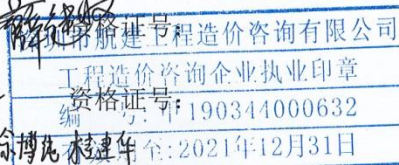 资格证号:
圳市航建工程造价咨询有限公司
工程造价咨询企业执业印章
资格证号:
编 号:甲190344000632
至:2021年12月31日
桂建华